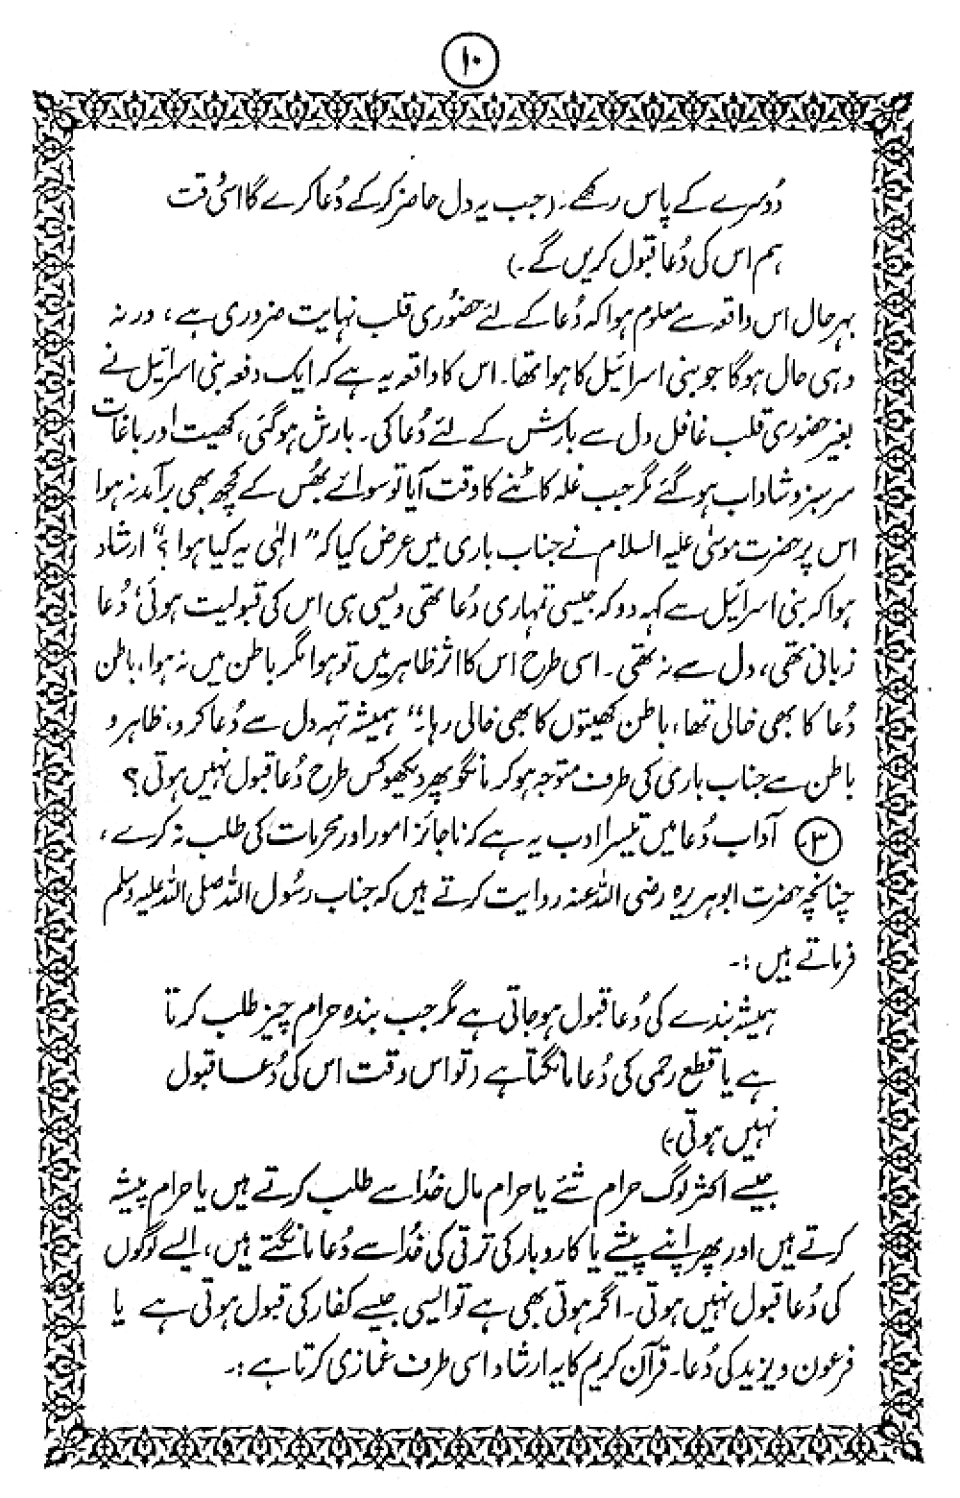 ۱۰
دُوسرے کے پاس رکھے۔ (جب یہ دل حاضر کر کے دُعا کرے گا اسی وقت
ہم اس کی دُعا قبول کریں گے۔)
بہر حال اس واقعہ سے معلوم ہوا کہ دُعا کے لئے حضُوری قلب نہایت ضروری ہے، ورنہ
وہی حال ہوگا جو بنی اسرائیل کا ہوا تھا۔ اس کا واقعہ یہ ہے کہ ایک دفعہ بنی اسرائیل نے
بغیر حضوری قلب غافل دل سے بارش کے لئے دُعا کی۔ بارش ہوگئی، کھیت اور باغات
سرسبز و شاداب ہوگئے مگر جب غلہ کاٹنے کا وقت آیا تو سوائے بھُس کے کچھ بھی برآمد نہ ہوا
اس پر حضرت موسیٰ علیہ السلام نے جناب باری میں عرض کیا کہ "الٰہی یہ کیا ہوا؟" ارشاد
ہوا کہ بنی اسرائیل سے کہہ دو کہ جیسی تمہاری دُعا تھی ویسی ہی اس کی قبولیت ہوئی' دُعا
زبانی تھی، دل سے نہ تھی۔ اسی طرح اس کا اثر ظاہر میں تو ہوا مگر باطن میں نہ ہوا، باطن
دُعا کا بھی خالی تھا، باطن کھیتوں کا بھی خالی رہا۔" ہمیشہ تہہ دل سے دُعا کرو، ظاہر و
باطن سے جناب باری کی طرف متوجہ ہو کر مانگو پھر دیکھو کس طرح دُعا قبول نہیں ہوتی؟
۳۔ آداب دُعا میں تیسرا ادب یہ ہے کہ ناجائز امور اور محرمات کی طلب نہ کرے،
چنانچہ حضرت ابوہریرہ رضی اللہ عنہ روایت کرتے ہیں کہ جناب رسُول اللہ صلی اللہ علیہ وسلم
فرماتے ہیں :۔
ہمیشہ بندے کی دُعا قبول ہوجاتی ہے مگر جب بندہ حرام چیز طلب کرتا
ہے یا قطع رحمی کی دُعا مانگتا ہے (تو اس وقت اس کی دُعا قبول
نہیں ہوتی۔)
جیسے اکثر لوگ حرام شئے یا حرام مال خُدا سے طلب کرتے ہیں یا حرام پیشہ
کرتے ہیں اور پھر اپنے پیشے یا کاروبار کی ترقی کی خُدا سے دُعا مانگتے ہیں، ایسے لوگوں
کی دُعا قبول نہیں ہوتی۔ اگر ہوتی بھی ہے تو ایسی جیسے کفار کی قبول ہوتی ہے یا
فرعون و یزید کی دُعا۔ قرآن کریم کا یہ ارشاد اسی طرف غمازی کرتا ہے :۔